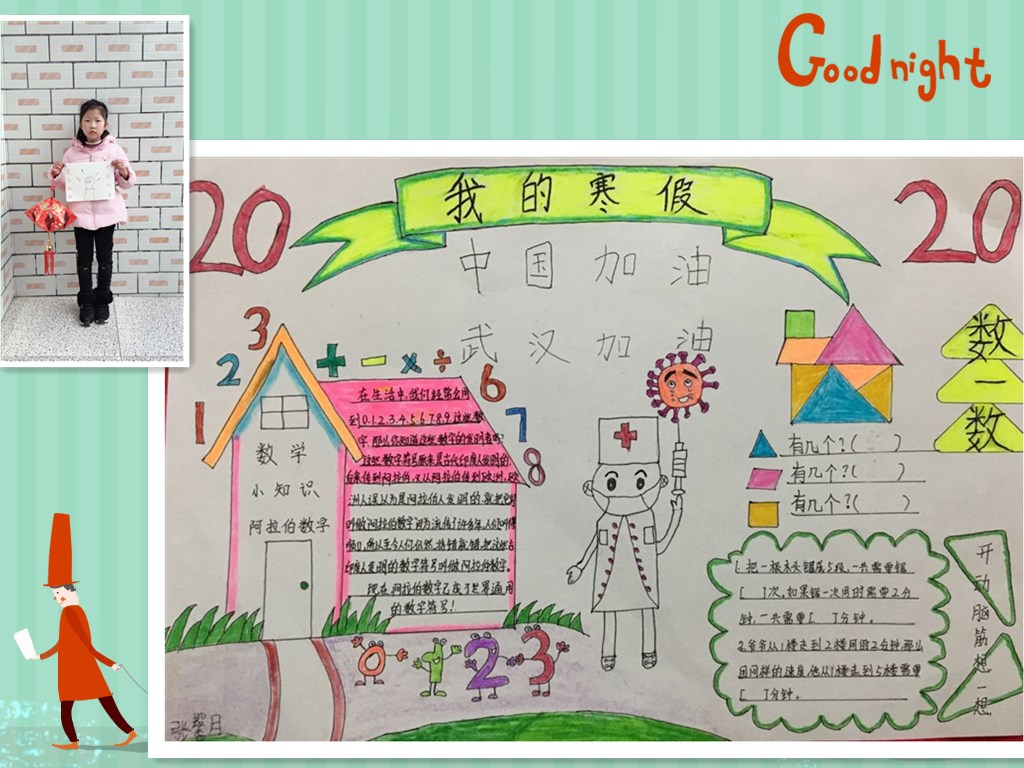 Good night
20
我的寒假
20
中国加油
武汉加油
1
2
3
+ - × ÷
6
7
8
数学
小知识
阿拉伯数字
在生活中,我们经常会用
到0.1.2.3.4.5.6.7.8.9.这些数
字.那么你知道这些数字的发明者吗?
这些数字符号原来是古代印度人发明的.
后来传到阿拉伯,又从阿拉伯传到欧洲,欧
洲人误以为是阿拉伯人发明的.就把它们
叫做阿拉伯数字.因为流传了许多年,人们叫得
顺口,所以至今人们仍然将错就错,把这些古
印度人发明的数字符号叫做阿拉伯数字.
现在,阿拉伯数字已成了世界通用
的数字符号!
0 1 2 3
数
一
数
有几个?( )
有几个?( )
有几个?( )
1.把一根木头锯成5段,一共需要锯
[ ]次.如果锯一次用时需要2分
钟,一共需要[ ]分钟。
2.爷爷从1楼走到2楼用时2分钟,那么
用同样的速度,他从1楼走到5楼需要
[ ]分钟。
开动脑筋想一想
张翠月